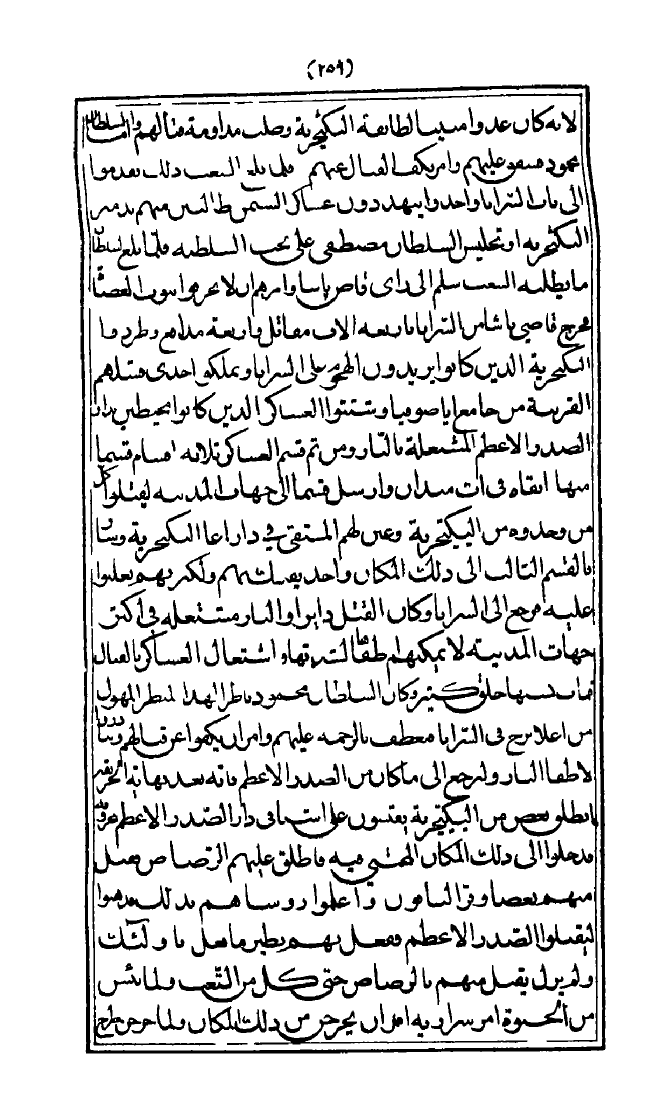 (٢٥٩)
لانه كان عدوا مسببا لطايفة اليكيجرية وطلب مداومة قتالهم واما السلطان
محمود فشفق عليهم وامر بكف القتال عنهم فلما بلغ الشعب ذلك تقدموا
الى باب السرايا واحدوا يتهددون عساكر
اليكيجرية او تجليس السلطان مصطفى على تخت السلطنة فلما بلغ السلطان
ما يطلبه الشعب سلم الى راى قاضي باشا وامرهم ان لا يرحموا
فخرج قاضي باشا من السرايا باربعة الاف مقاتل واربعة مدافع وطردوا
اليكيجرية الذين كانوا يريدون الهجوم على السرايا وتملكوا احدى قشلهم
القريبة من جامع اياصوفيا وشتتوا العساكر الذين كانوا محيطين بدار
الصدر الاعظم المشتعلة بالنار ومن ثم قسم العساكر ثلاثة اقسام قسما
منها ابقاه في ات ميدان وارسل قسما الى جهات المدينه ليقتلوا كل
من وجدوه من اليكيجرية وعين لهم الملتقى في دار اغا اليكيجرية وسار
بالقسم الثالث الى ذلك المكان واخذ يفتك بهم ولكثرتهم لم يغلبوا
عليه فرجع الى السرايا وكان القتل دايرا والنار مشتعله في اكثر
جهات المدينه لا يمكنهم طفاها لشدتها واشتغال العساكر بالقتال
فمات بسببها خلق كثير وكان السلطان محمود ناظرا لهذا المنظر المهول
من اعلا برج في السرايا فعطف بالرحمه عليهم وامر ان يكفوا عن قتالهم ويبادروا
لاطفا النار ولنرجع الى ما كان من الصدر الاعظم فانه بعد نهاية الحريق
انطلق بعض من اليكيجرية يفتشون على اشيا في دار الصدر الاعظم
فدخلوا الى ذلك المكان المختبي فيه فاطلق عليهم الرصاص فقتل
منهم بعضا وفر الباقون واعلموا روساهم بذلك فدهموا
ليقتلوا الصدر الاعظم ففعل بهم نظير ما فعل باولئك
ولم يزل يقتل منهم بالرصاص حتى كل من التعب ولما يئس
من الحيوة امر سراريه ان يخرجن من ذلك المكان ولما خرجن